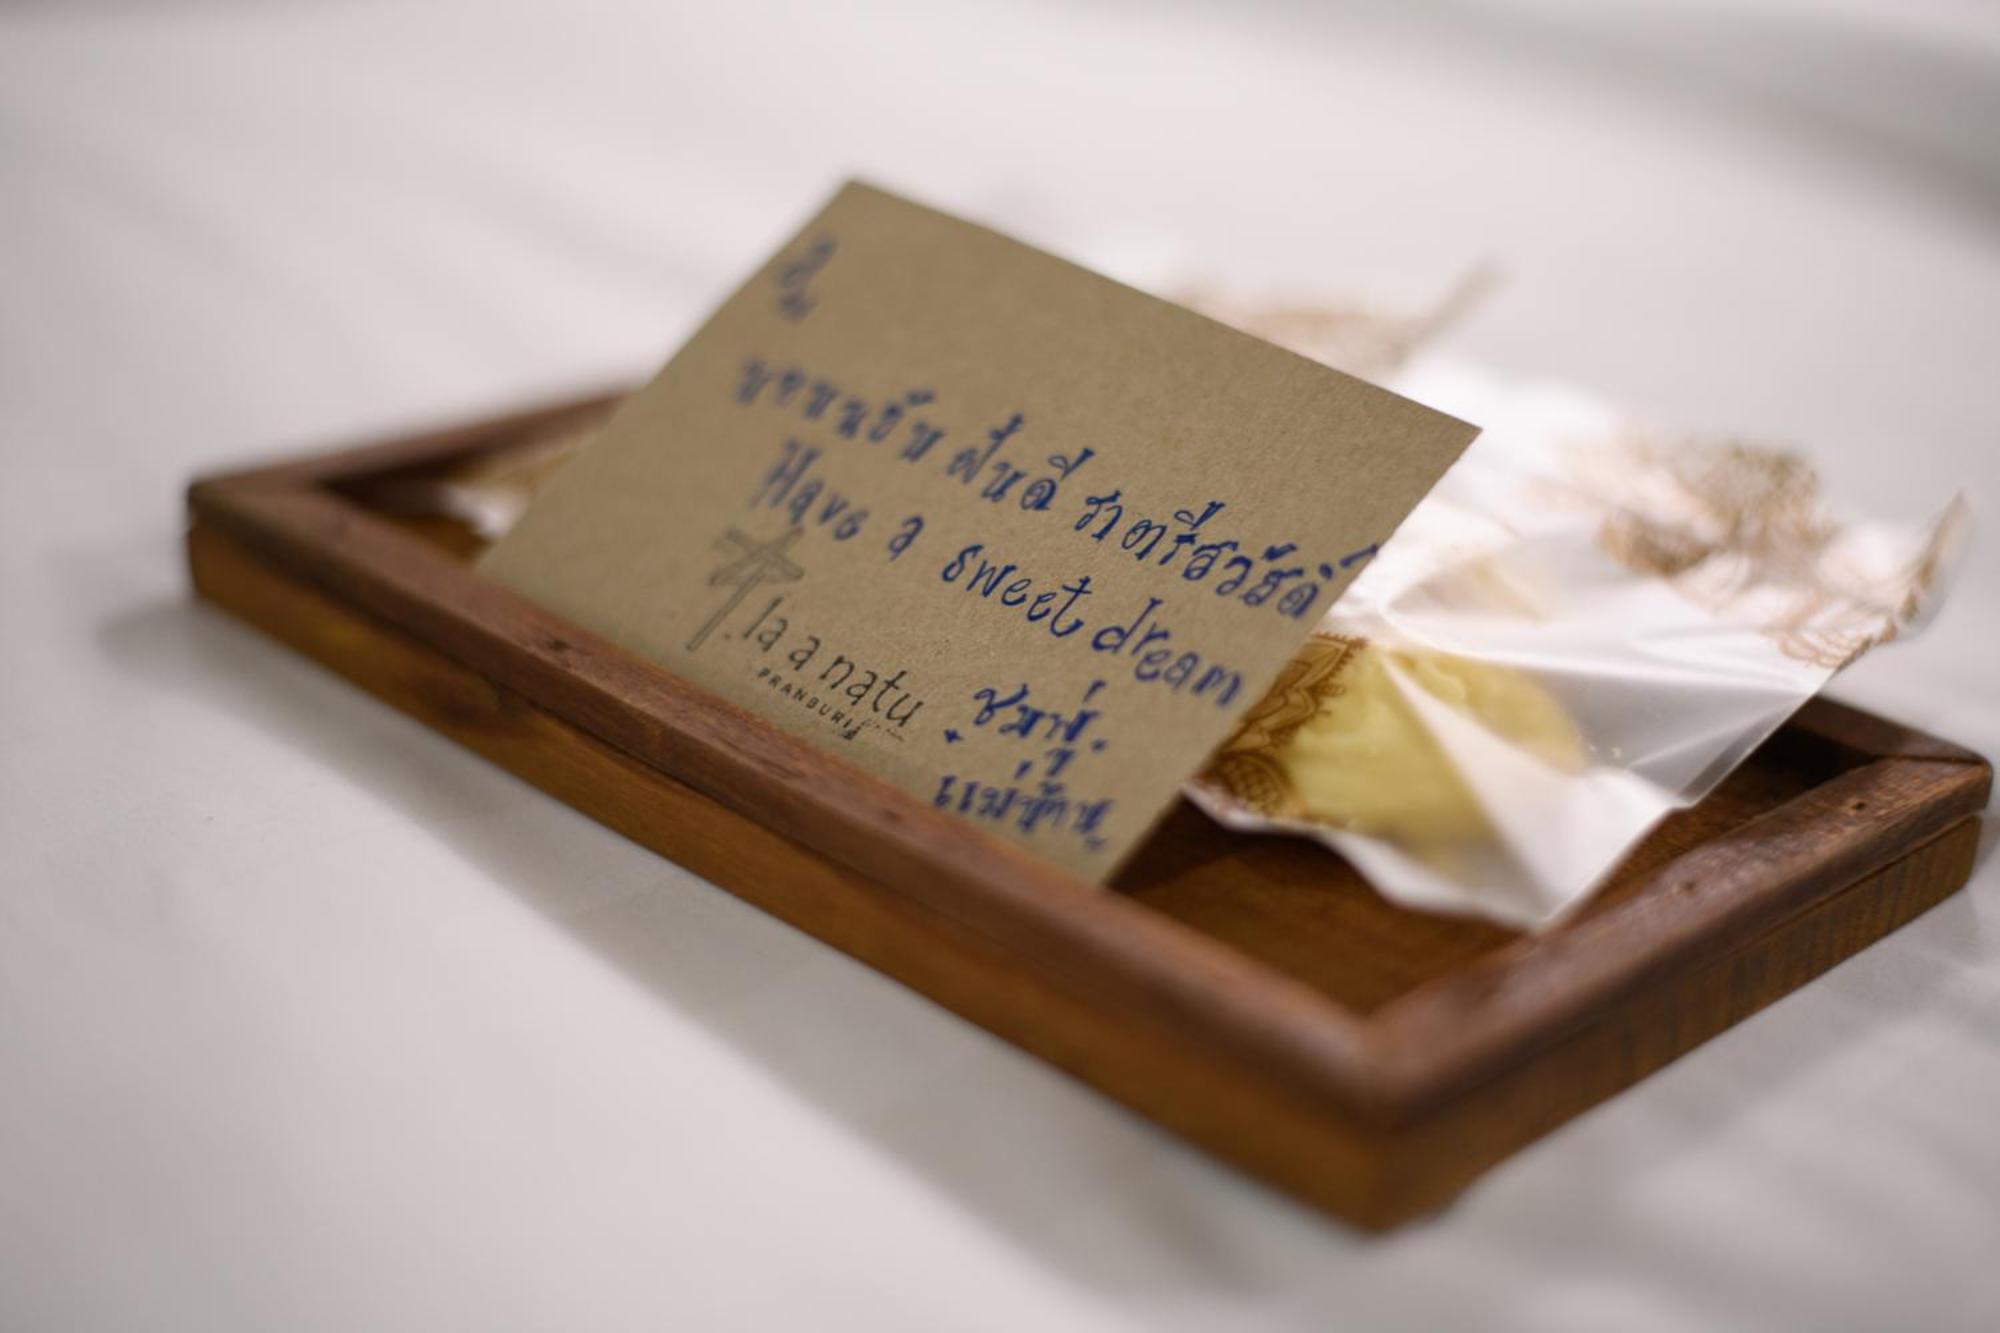 นอนหลับ ฝันดี ราตรีสวัสดิ์
Have a sweet dream
la a natu
PRANBURI
ชมพู่
แม่บ้าน